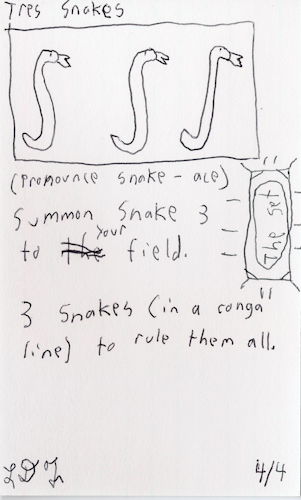 Tres Snakes
(Pronounce snake - ace)
Summon Snake 3
to your field.
The Set
3 Snakes (in a conga
line) to rule them all.
LDL 4/4